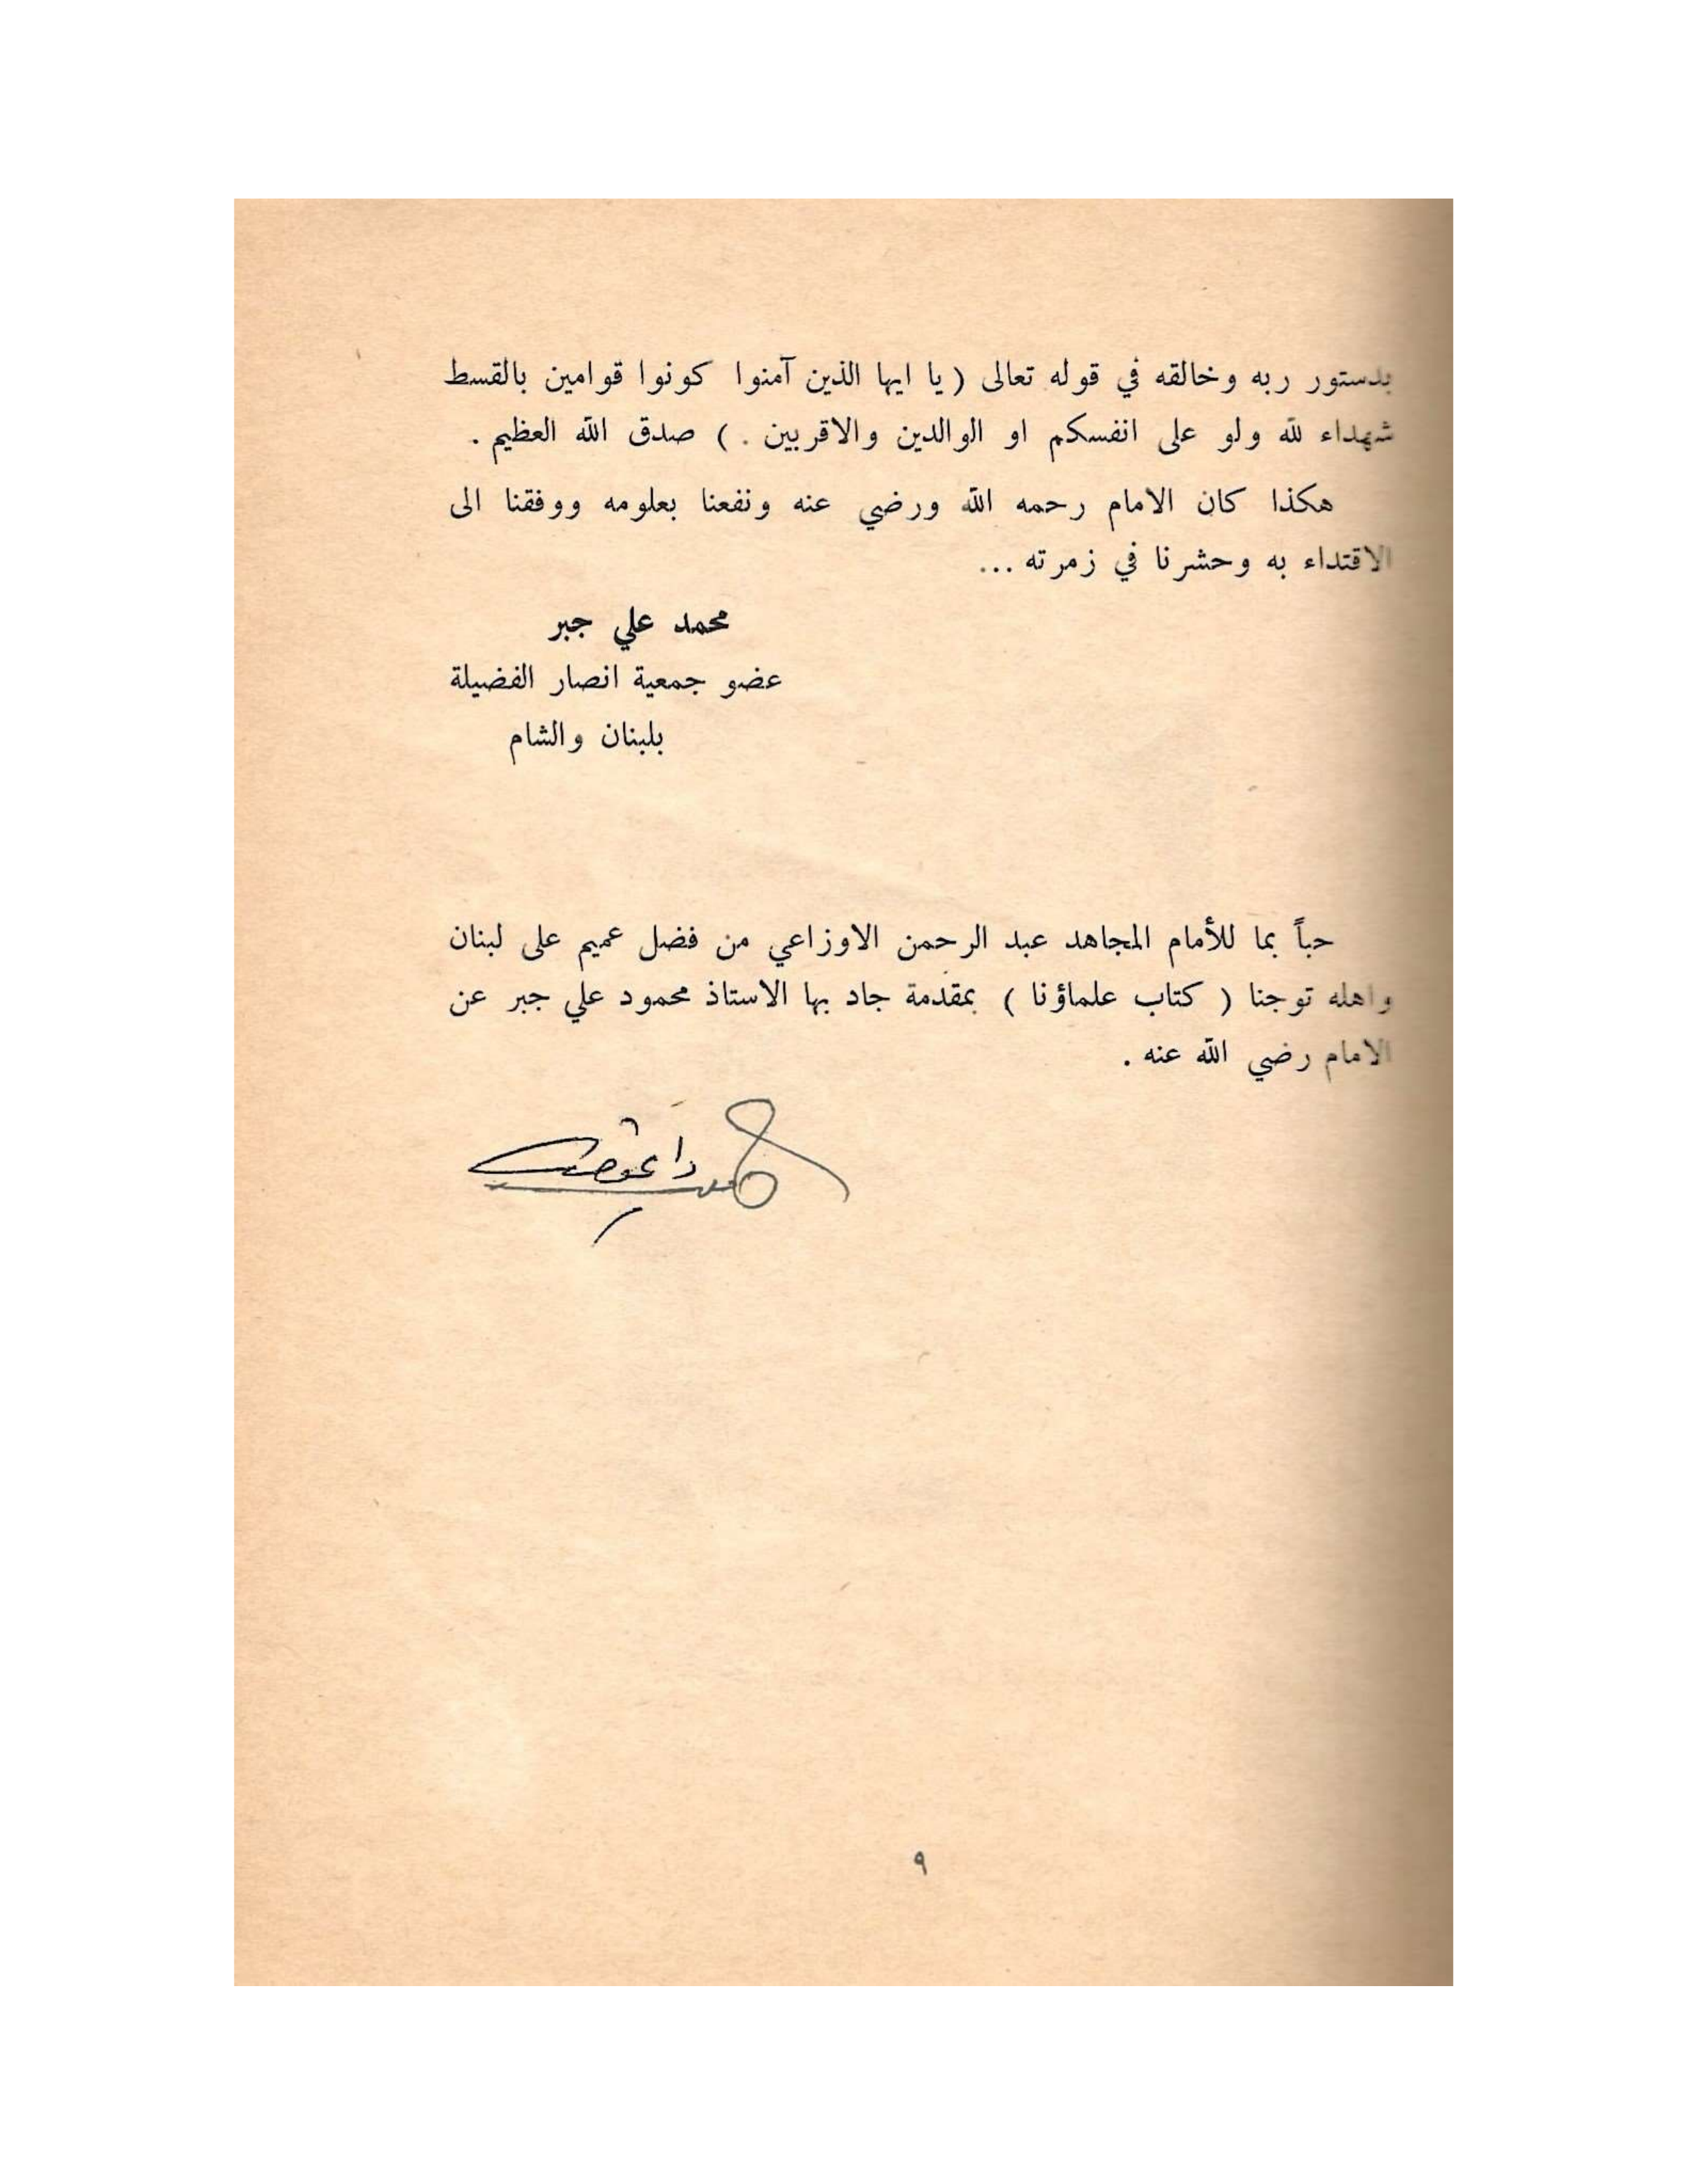 بدستور ربه وخالقه في قوله تعالى ( يا ايها الذين آمنوا كونوا قوامين بالقسط
شهداء لله ولو على انفسكم او الوالدين والاقربين . ) صدق الله العظيم .
هكذا كان الامام رحمه الله ورضي عنه ونفعنا بعلومه ووفقنا الى
الاقتداء به وحشرنا في زمرته ...
محمد علي جبر
عضو جمعية انصار الفضيلة
بلبنان والشام
حباً بما للأمام المجاهد عبد الرحمن الاوزاعي من فضل عميم على لبنان
واهله توجنا ( كتاب علماؤنا ) بمقدمة جاد بها الاستاذ محمود علي جبر عن
الامام رضي الله عنه .
٩